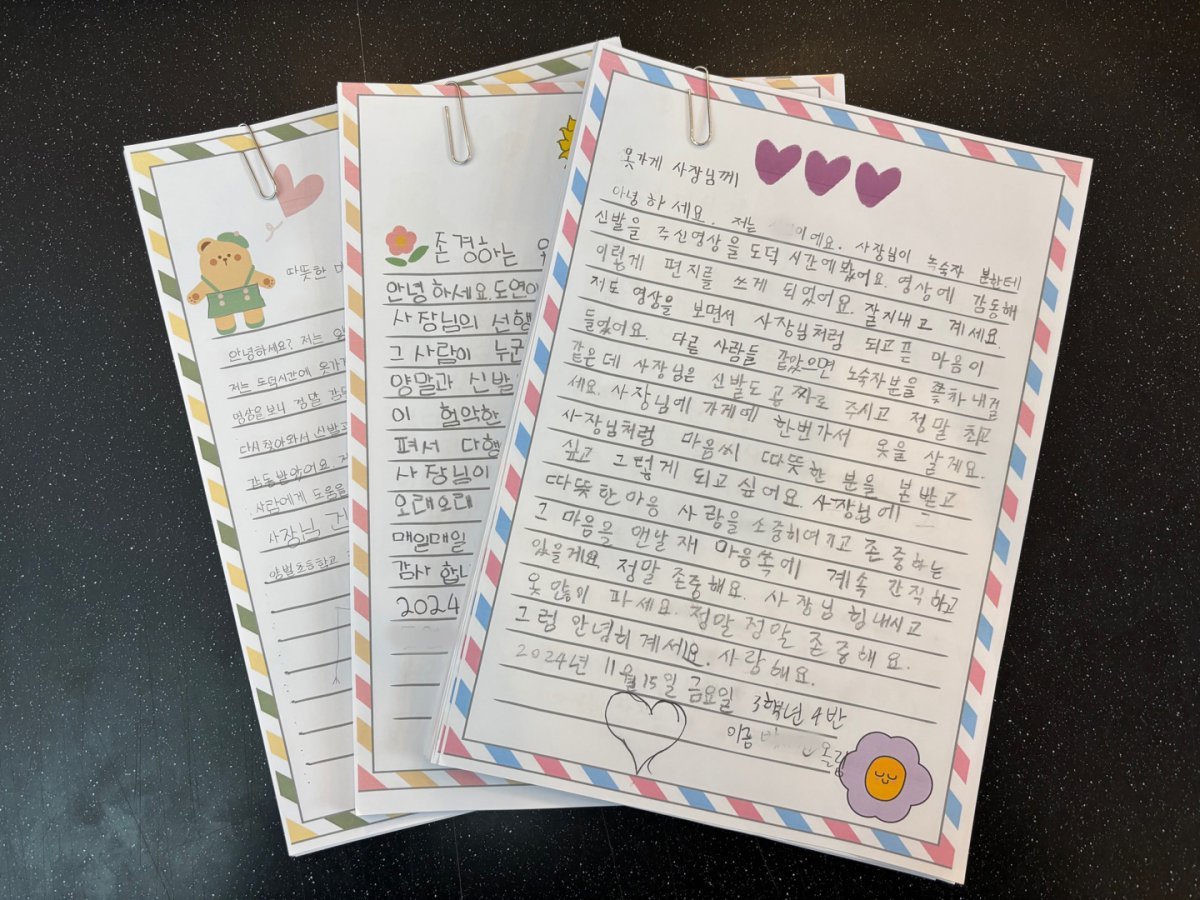 따뜻한
안녕하세요? 저는
저는 도덕시간에 옷가게
영상을 보니 정말 감동
다시 찾아와서 신발과
감동받았어요.
사람에게 도움을
사장님
초등학교
존경하는
안녕하세요. 도연이
사장님의 선행
그 사람이 누군
양말과 신발
이 험악한
펴서 다행
사장님이
오래오래
매일매일
감사 합니
2024
옷가게 사장님께
안녕하세요. 저는 이예요. 사장님이 노숙자 분한테
신발을 주신영상을 도덕 시간에 봤어요. 영상에 감동해
이렇게 편지를 쓰게 되었어요. 잘지내고 계세요.
저도 영상을 보면서 사장님처럼 되고픈 마음이
들었어요. 다른 사람들 같았으면 노숙자분을 쫓차내걸
같은데 사장님은 신발도 공짜로 주시고 정말 최고
세요. 사장님에 가게에 한번가서 옷을 살게요.
사장님처럼 마음씨 따뜻한 분을 본받고
싶고 그렇게 되고싶어요. 사장님에
따뜻한마음 사랑을 소중히여기고 존중하는
그 마음을 맨날 재 마음쏙에 계속 간직하고
있을게요 정말 존중해요. 사장님 힘내시고
옷 많이 파세요. 정말정말 존중해요.
그럼 안녕히계세요. 사랑해요.
2024년 11월 15일 금요일 3학년 4반
이름 올림